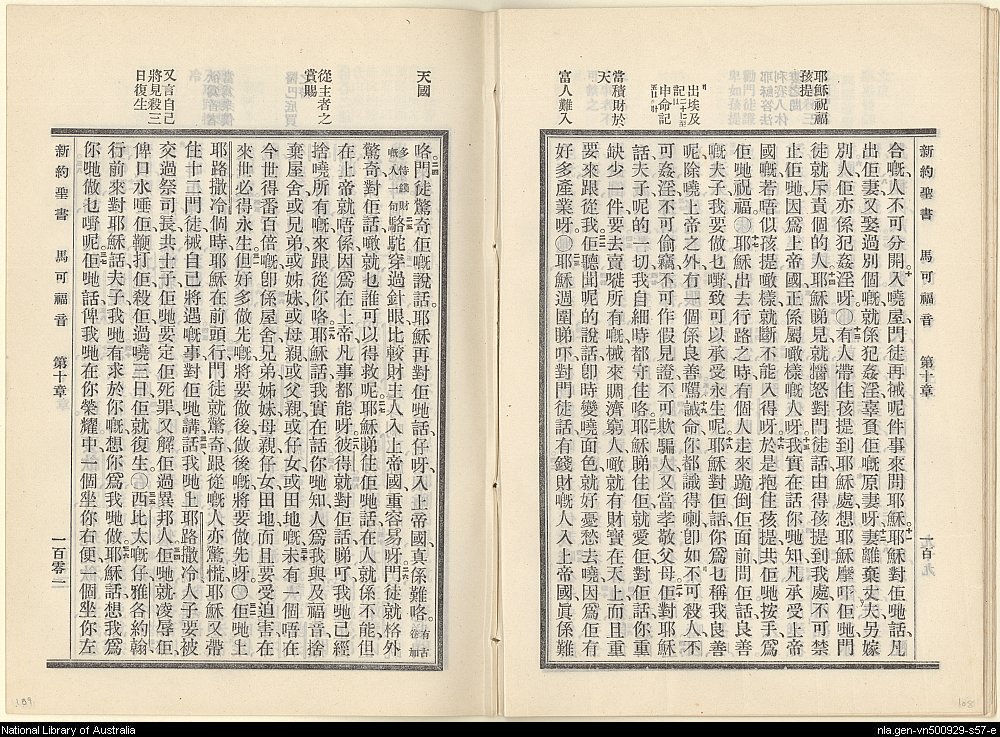 耶穌祝福
孩提
出埃及
記二十二至
申命記
當積財於
天
富人難入
新約聖書 馬可福音 第十章 一百九
合嘅人不可分開、入嘵屋門徒再將呢件事來問耶穌、耶穌對佢哋話凡
出佢妻又娶過別個嘅就係犯姦淫辜負佢嘅原妻呀妻離棄丈夫另嫁
別人佢亦係犯姦淫呀 有人帶住孩提到耶穌處想耶穌摩吓佢哋門
徒就斥責個的人耶穌睇見就懰怒對門徒話由得孩提到我處不可禁
止佢哋因爲上帝國正係屬噉樣嘅人呀我實在話你哋知凡承受上帝
國嘅若唔似孩提噉樣就斷不能入得呀於是抱住孩提共佢哋按手爲
佢哋祝福 耶穌出去行路之時有個人走來跪倒佢面前問佢話良善
嘅夫子我要做乜嘢致可以承受永生呢耶穌對佢話你爲乜稱我良善
呢除嘵上帝之外有一個係良善嘅誡命你都識得喇卽如不可殺人不
可姦淫不可偷竊不可作假見證不可欺騙人又當孝敬父母佢對耶穌
話夫子呢的一切我自細時都守住咯耶穌睇住佢就愛佢對佢話你重
缺少一件要去賣嘵所有嘅將來賙濟窮人噉就有財寶在天上而且重
要來跟從我佢聽聞呢的說話卽時變嘵面色就好憂愁去嘵因爲佢有
好多產業呀 耶穌週圍睇吓對門徒話有錢財嘅人入上帝國眞係難
天國
從主者之
賞賜
又言自己
將見殺三
日復生
咯門徒驚奇佢嘅說話耶穌再對佢哋話仔呀入上帝國真係難咯有古卷加
多恃錢財嘅人一句駱駝穿過針眼比較財主人入上帝國重容易呀門徒就格外
驚奇對佢話噉就乜誰可以得救呢耶穌睇住佢哋話在人就係不能但
在上帝就唔係因爲在上帝凡事都能呀彼得就對佢話睇吓我哋已經
捨嘵所有嘅來跟從你咯耶穌話我實在話你哋知人爲我與及福音捨
棄屋舍或兄弟或姊妹或母親或父親或仔女或田地嘅未有一個唔在
今世得番百倍嘅卽係屋舍兄弟姊妹母親仔女田地而且要受迫害在
來世必得永生但好多做先嘅將要做後做後嘅將要做先呀 佢哋上
耶路撒冷個時耶穌在前頭行門徒就驚奇跟從嘅人亦驚慌耶穌又帶
住十二門徒將自己將遇嘅事對佢哋講話我哋上耶路撒冷人子要被
交過祭司長共士子佢哋要定佢死罪又解佢過異邦人佢哋就凌辱佢
俾口水唾佢鞭打佢殺佢過嘵三日佢就復生 西比太嘅仔雅各約翰
行前來對耶穌話夫子我哋有求於你嘅想你爲我哋做耶穌話想我爲
你哋做乜嘢呢佢哋話俾我哋在你榮耀中一個坐你右便一個坐你左
新約聖書 馬可福音 第十章 一百零二
189
108
National Library of Australia
nla.gen-vn500929-s57-e